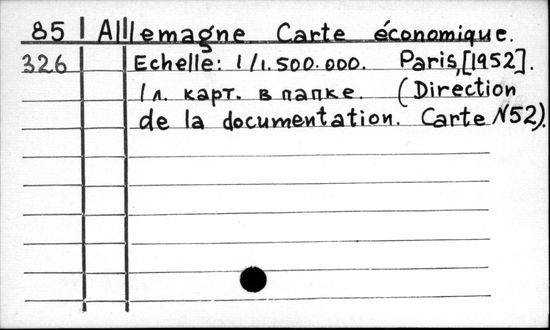 85 Allemagne Carte économique.
326 Echelle: 1/1.500.000. Paris, [1952].
1 л. карт. в папке. (Direction
de la documentation. Carte N52).